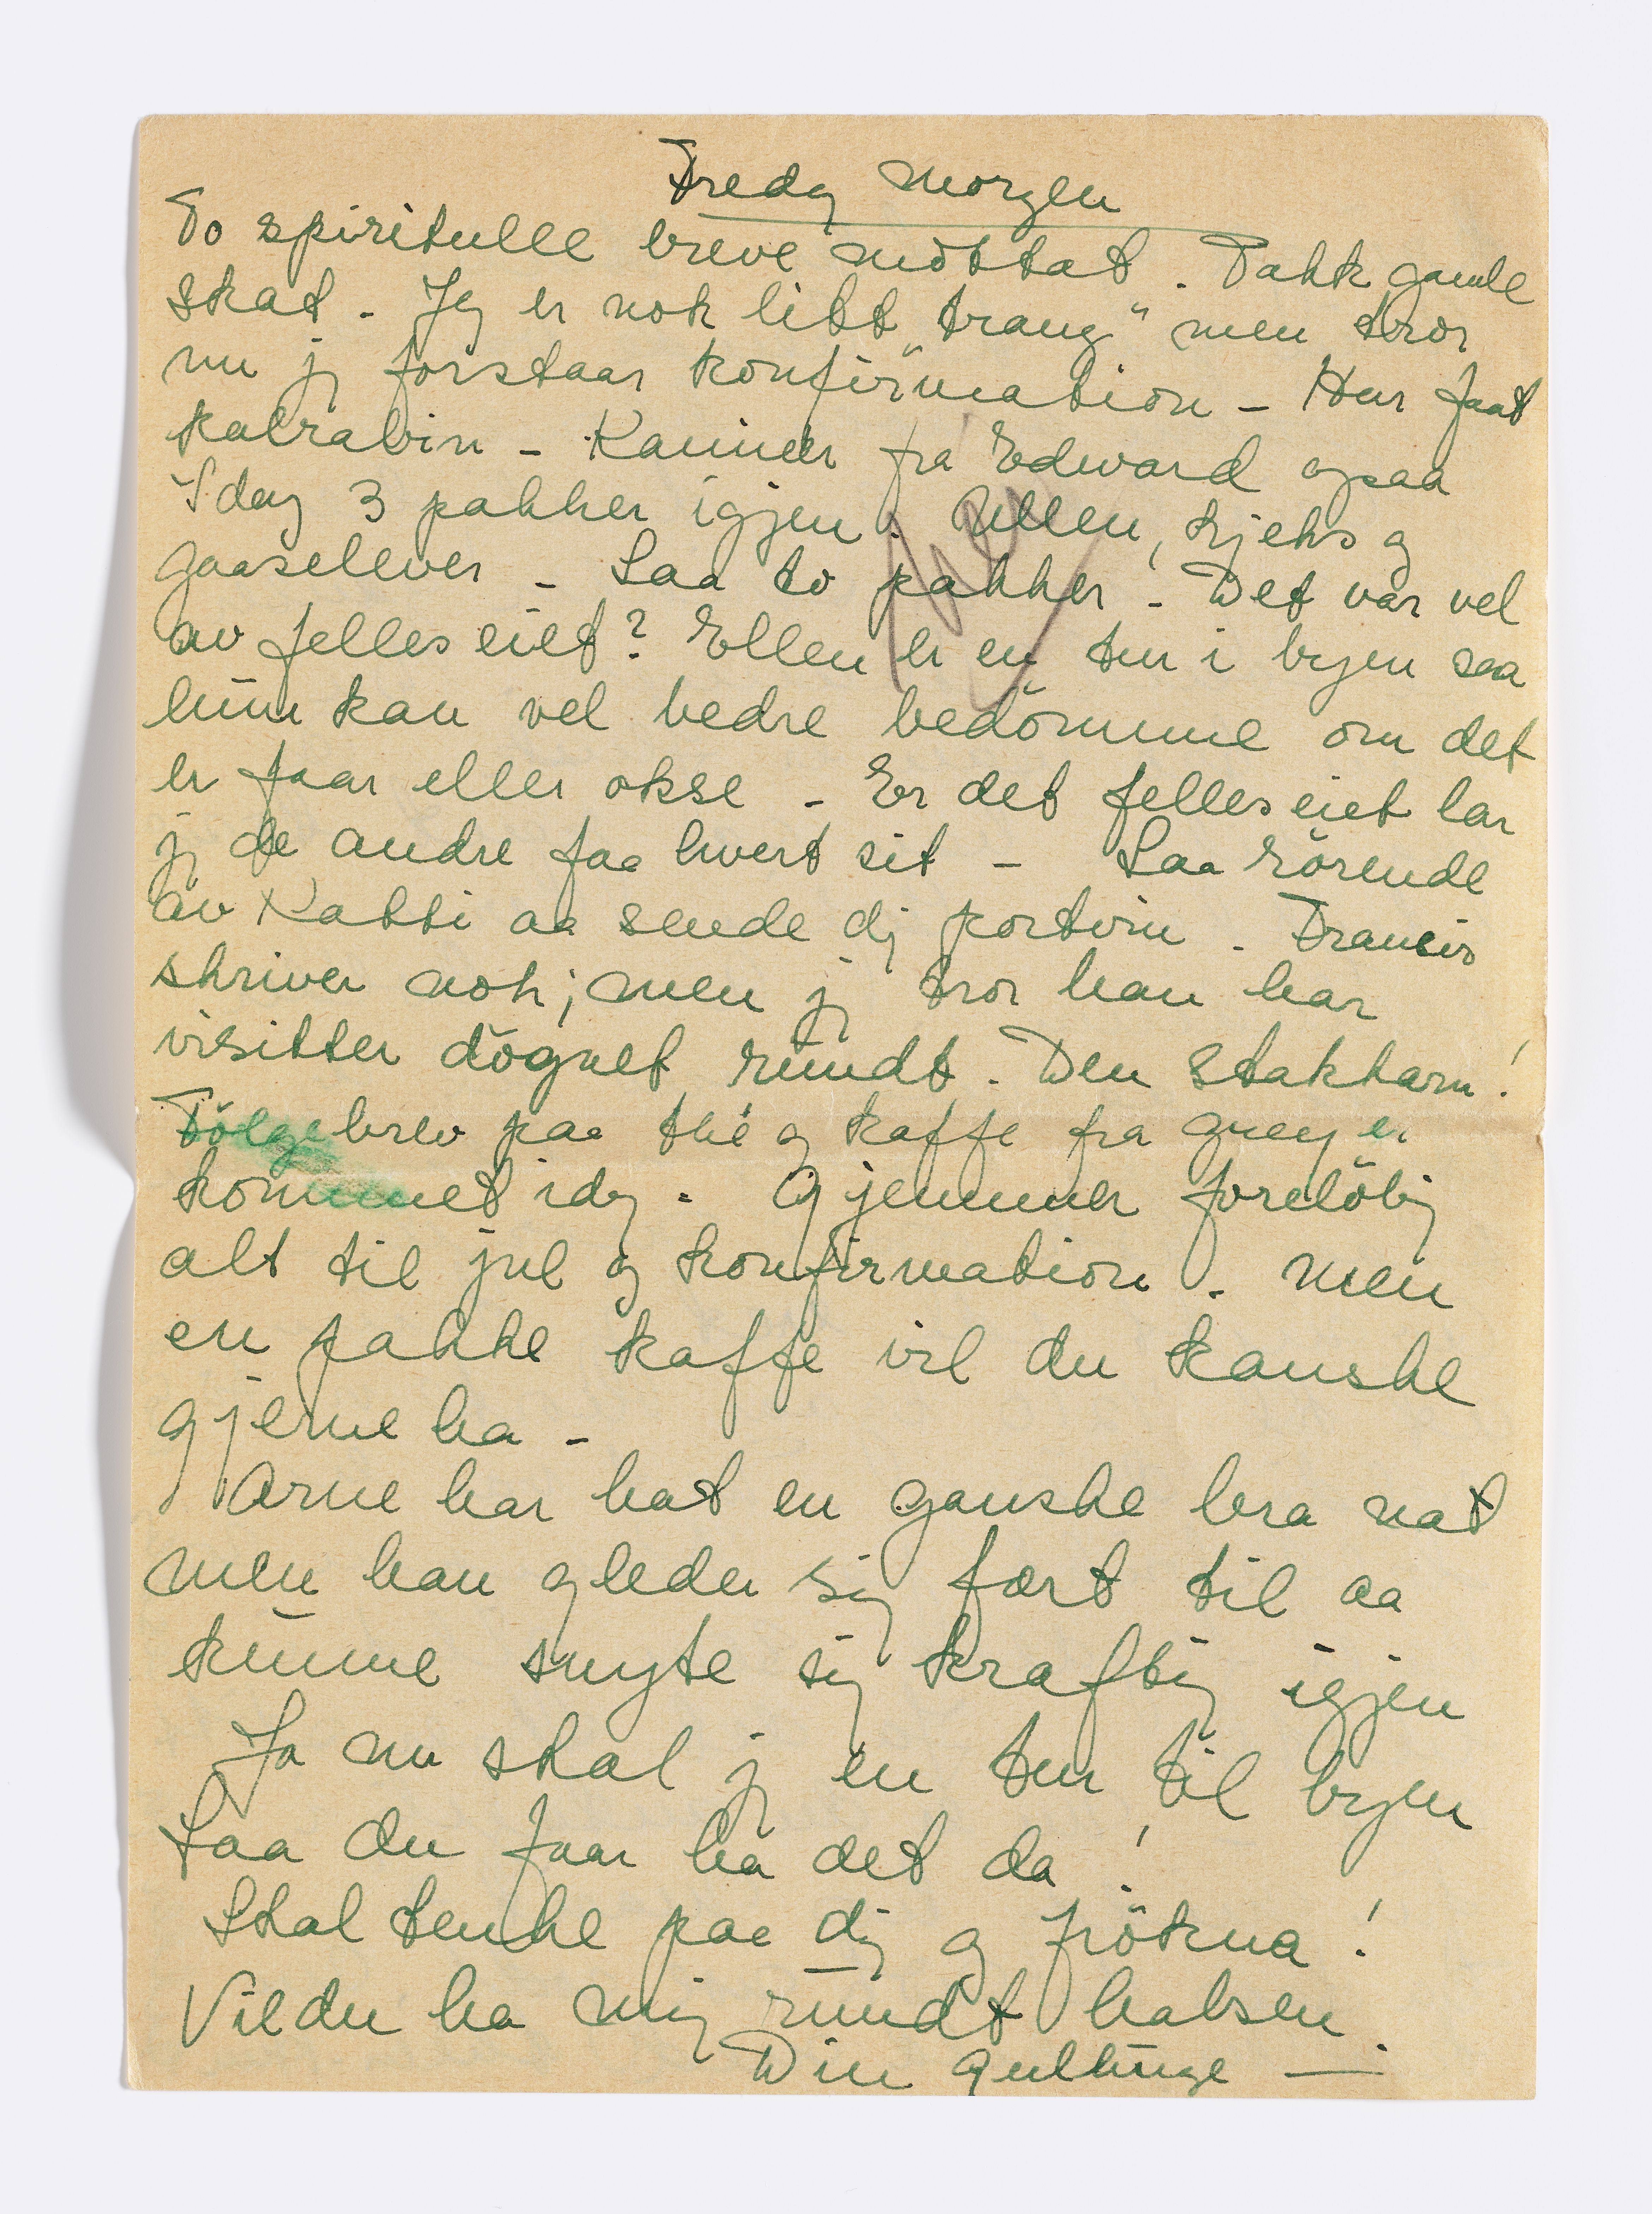 Fredag morgen
To spirituelle breve mottat. Takk gamle
skat. Jeg er nok litt "trang" men tror
nu jg forstaar konfirmation - Har faat
kalrabin - Kaniner fra Edward ogsaa
Idag 3 pakker igjen. Ullen, kjeks og
gaaselever - Saa to pakker. Det var vel
av felles eiet? Ellen er en tur i byen saa
hun kan vel bedre bedömme om det
er faar eller okse - Er det felles eiet lar
jg de andre faa hvert sit - Saa rörende
av Katti aa sende dig portvin. Francis
skriver nok; men jg tror han har
visitter dögnet rundt. Den stakkarn!
Fölgebrev paa thé og kaffe fra Grey er
kommet idag. Gjemmer forelöbig
alt til jul og konfirmation. Men
en pakke kaffe vil du kanske
gjerne ha -
Arne har hat en ganske bra nat
men han gleder sig fort til aa
kunne snyte sig kraftig igjen
Ja nu skal jg en tur til byen
Saa du faar ha det da!
Skal tenke paa dig og frökna!
Vil du ha mig rundt halsen.
Din gullunge —